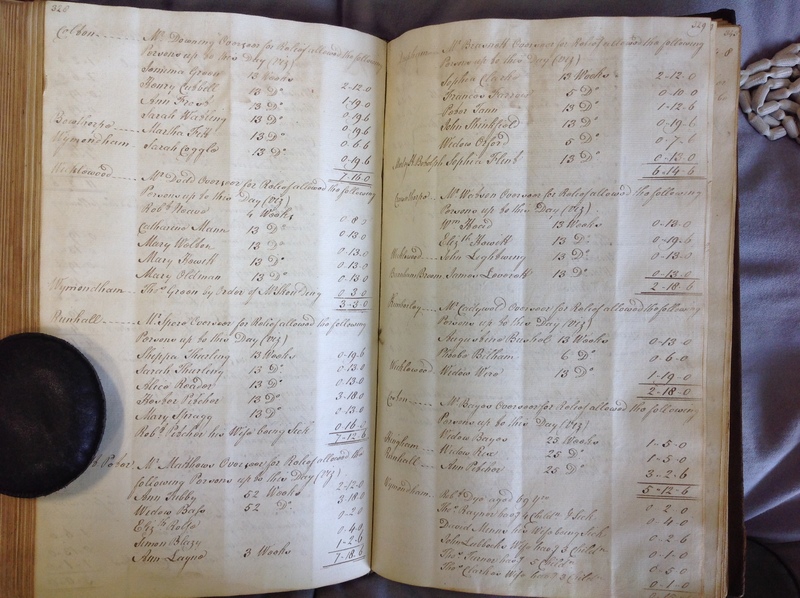 328
Colton Mr. Downing Overseer for Relief allowed the following
Persons up to this Day (Viz)
Jemima Green 13 Weeks 2-12-0
Henry Cubbell 13 Do 1-19-0
Ann Frost 13 Do 0-19-6
Sarah Waxling 13 Do 0-19-6
Bowthorpe Martha Fitt 13 Do 0-6-6
Wymondham Sarah Coggle 13 Do 0-19-6
7-16-0
Wicklewood Mr. Dodd Overseer for Relief allowed the following
Persons up to this Day (Viz)
Robt. 4 Weeks 0-8-0
Catharine Mann 13 Do 0-13-0
Mary Wolben 13 Do 0-13-0
Mary Howick 13 Do 0-13-0
Mary Oldman 13 Do 0-13-0
Wymondham Thos. Green by Order of Mr. 0-3-0
3-3-0
Runhall Mr. Spore Overseer for Relief allowed the following
Persons up to this Day (Viz)
Thurling 13 Weeks 0-19-6
Sarah Thurling 13 Do 0-13-0
Alice Reader 13 Do 0-13-0
Hester Pitcher 13 Do 3-18-0
Mary Spragg 13 Do 0-13-0
Robt. Pitcher his Wife being Sick 0-16-
7-12-6
Mr. Matthews Overseer for Relief allowed the
following Persons up to this Day (Viz)
Ann Tubby 52 Weeks 2-12-0
Widow Bass 52 Do 3-18-0
Elizth. Rolfe 1-2-0
Simon Blazy 0-4-0
Ann Layne 3 Weeks 1-2-6
7-18-6
329
Mr. Brasnett Overseer for Relief allowed the following
Persons up to this Day (Viz)
Sophia Clarke 13 Weeks 2-12-0
Frances Farrow 5 Do 0-10-0
Peter Tann 13 Do 1-12-6
John Skinkfield 13 Do 0-19-6
Widow Orford 5 Do 0-7-6
Sophia Flint 13 Do 0-13-0
6-14-6
Mr. Watson Overseer for Relief allowed the following
Persons up to this Day (Viz)
Wm. Heard 13 Weeks 0-13-0
Elizth. Howick 13 Do 0-19-6
John Lightwing 13 Do 0-13-0
Barnham Broom James Leverett 13 Do 0-13-0
2-18-6
Kimberley Mr. Cadywold Overseer for Relief allowed the following
Persons up to this Day (Viz)
Augustine Bushel 13 Weeks 0-13-0
Bitham 6 Do 0-6-0
Wicklewood Widow Wire 13 Do 1-19-0
2-18-0
Coston Mr. Bayes Overseer for Relief allowed the following
Persons up to this Day (Viz)
Hingham Widow Bayes 25 Weeks 1-5-0
Widow Rix 25 Do 1-5-0
Runhall Ann Pitcher 25 Do 3-2-6
5-12-6
Wymondham Robt. Dye aged 69 Yrs. 0-2-0
Thos. Rayner has 4 Childn. & Sick 0-4-0
David Minns his Wife being Sick 0-2-6
John Lubbock Wife has 3 Childn. 0-1-0
Thos. Turner has 5 Childn. 0-5-0
Thos. Clarkes Wife has 3 Childn. 0-1-0